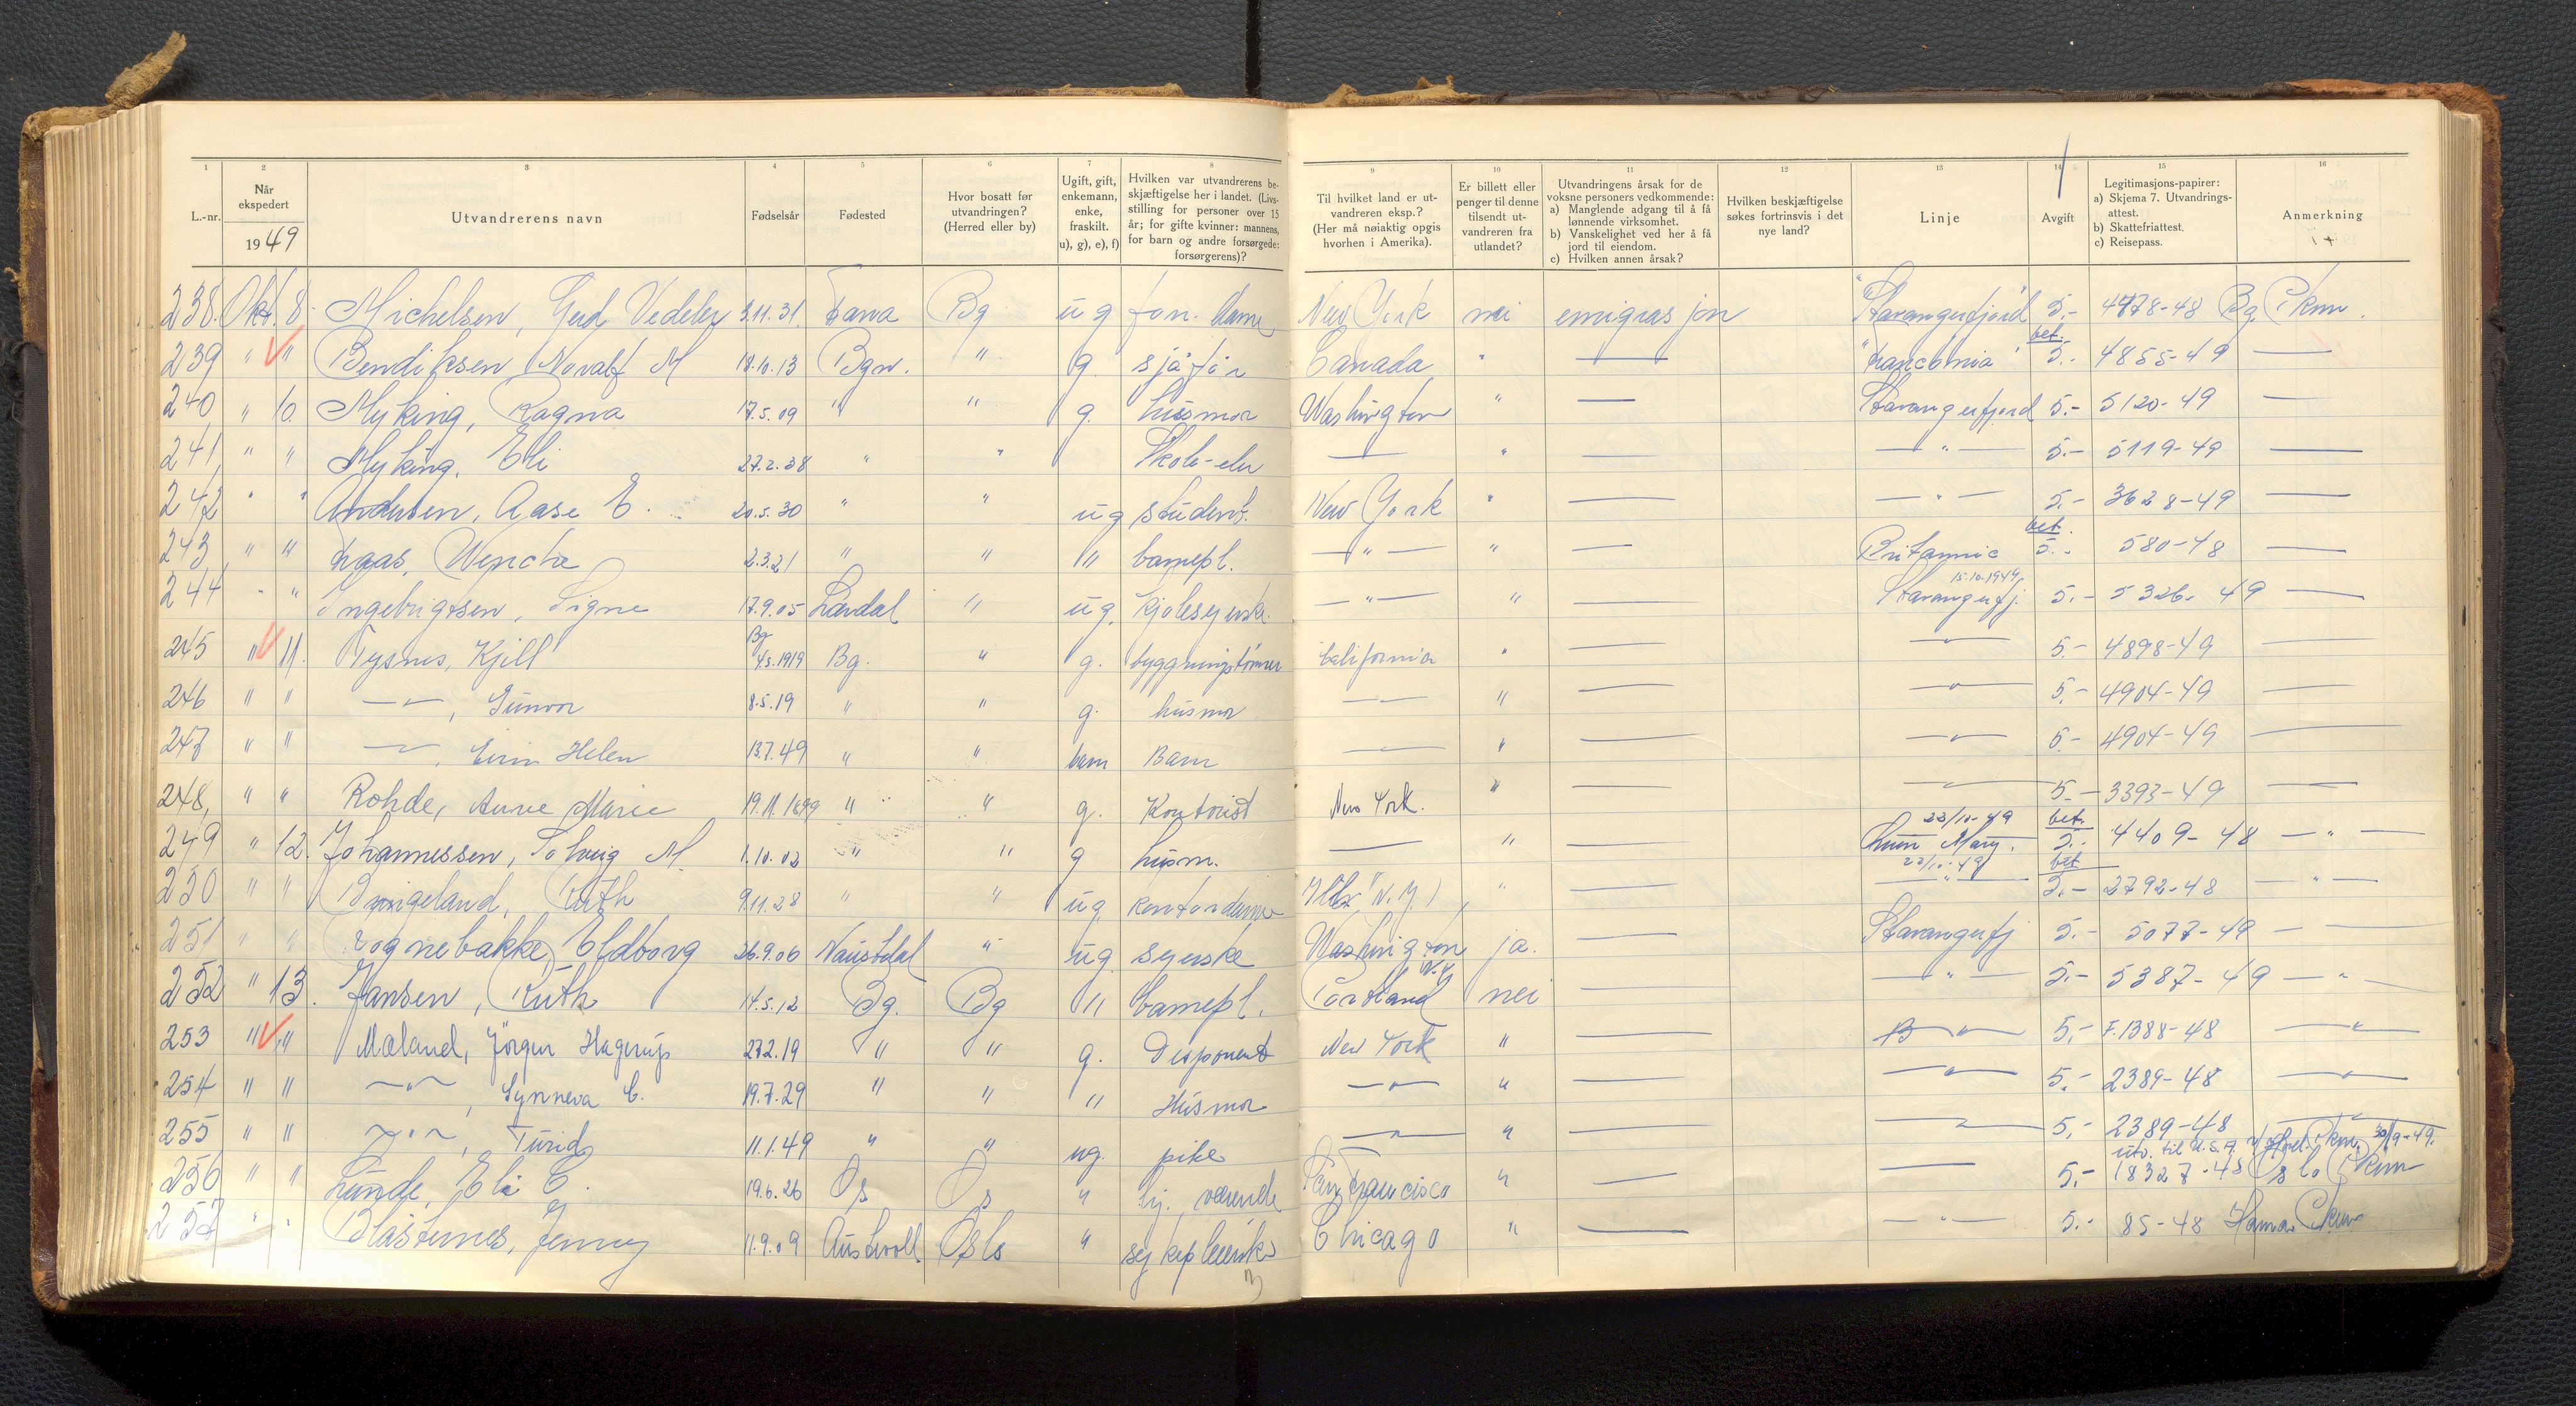 1 2 3 4 5 6 7 8 9 10 11 12 13 14 15 16
L.-nr. | Når ekspedert 1949 | Utvandrerens navn | Fødselsår | Fødested | Hvor bosatt før utvandringen? (Herred eller by) | Ugift, gift, enkemann, enke, fraskilt. u), g), e), f) | Hvilken var utvandrerens beskjæftigelse her i landet. (Livsstilling for personer over 15 år; for gifte kvinner: mannens, for barn og andre forsørgede: forsørgerens)? | Til hvilket land er utvandreren eksp.? (Her må nøiaktig opgis hvorhen i Amerika). | Er billett eller penger til denne tilsendt utvandreren fra utlandet? | Utvandringens årsak for de voksne personers vedkommende: a) Manglende adgang til å få lønnende virksomhet. b) Vanskelighet ved her å få jord til eiendom. c) Hvilken annen årsak? | Hvilken beskjæftigelse søkes fortrinsvis i det nye land? | Linje | Avgift | Legitimasjons-papirer: a) Skjema 7. Utvandringsattest. b) Skattefriattest. c) Reisepass. | Anmerkning
238. Okt. 8. Michelsen, Gerd Vedeler 3.11.31 Fana Bg ug New York nei emigrasjon "Stavangerfjord 5.- 4778-48 Bg.
239 " " Bendiksen Noralf M 18.10.13 Bgn. " g. sjåfør Canada " — "Franconia" bet. 5.- 4855-49 —
240 " 10. Myking, Ragna 17.5.09 " " g. husmor Washington " — Stavangerfjord 5.- 5120-49 —
241 " " Myking, Eli 27.2.38 " " Skole-elev — " — — " — 5.- 5119-49 —
242 " " Andersen, Aase E. 20.5.30 " " ug student. New York " — — " — 5.- 3628-49 —
243 " " Haas, Wenche 2.3.21 " " " barnepl. — " — " — Britannic bet. 5.- 580-48 —
244 " " Ingebrigtsen, Signe 17.9.05 " ug. kjolesyerske — " — " — Stavangerfj. 15.10.1949 5.- 5326-49 —
245 " 11. Tysnes, Kjell Bg 4.5.1919 Bg. " g. California " — — " — 5.- 4898-49 —
246 " " — " —, Gunvor 8.5.19 " " g. husmor — " — " — — " — 5.- 4904-49 —
247 " " — " —, Helen 13.7.49 " " barn Barn — " — " — — " — 5.- 4904-49 —
248, " " Rohde, Anne Marie 19.11.1899 " " g. Kontorist New York. " — — " — 5.- 3393-49 —
249 " 12. Johannessen, Solveig M. 1.10.02 " " g husm. — " — Queen Mary. 22/10-49 bet. 5.- 4409-48 — " —
250 " " Ruth 9.11.28 " " ug kontordame N.Y.) " — 22/10-49 — " — bet 5.- 2792-48 — " —
251 " " Rognebakke, Eldborg 26.9.06 Naustdal " ug. syerske Washington ja. — Stavangerfj 5.- 5077-49 — —
252 " 13. Jansen, Ruth 14.5.12 Bg. Bg " barnepl. Cortland N.Y. nei — — " — 5.- 5387-49 — " —
253 " " Mæland, Jörgen Hagerup 27.2.19 " " g. Disponent New York " — — " — 5,- F.1388-48 — " —
254 " " — " —, Synneva C. 19.7.29 " " " Husmor — " — " — — " — 5.- 2389-48 — " —
255 " " — " —, Turid 11.1.49 " " ug. pike — " — " — — " — 5,- 2389-48 — " —
256 " " Lunde, Eli C. 19.6.26 Os Os " hj. værende San Francisco " — — 5,- 18327-48 utv. til U.S.A. 30/9-49. Oslo
257 " " Jenny 11.9.09 Austevoll Oslo " sykepleierske Chicago " — — " — 5.- 85-48 Hamar